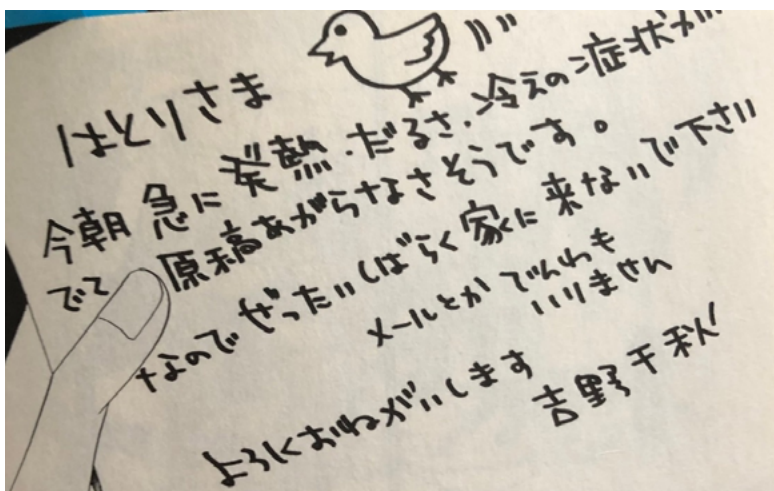 はとりさま
今朝 急に 発熱・だるさ・冷えの症状が
でて 原稿あがらなさそうです。
なので ぜったいしばらく家に 来ないで下さい
メールとか でんわも
いりません
よろしくおねがいします
吉野千秋